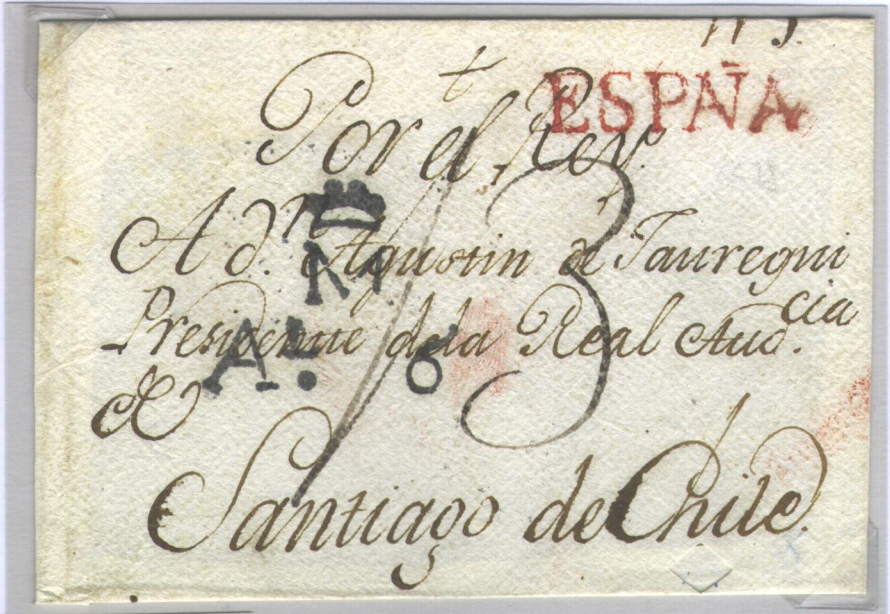 ESPAÑA
Por el Rey
A dn. Agustin de Jauregui
Presidente dela Real Aud.cia
de
Santiago de Chile
M
A
6
13